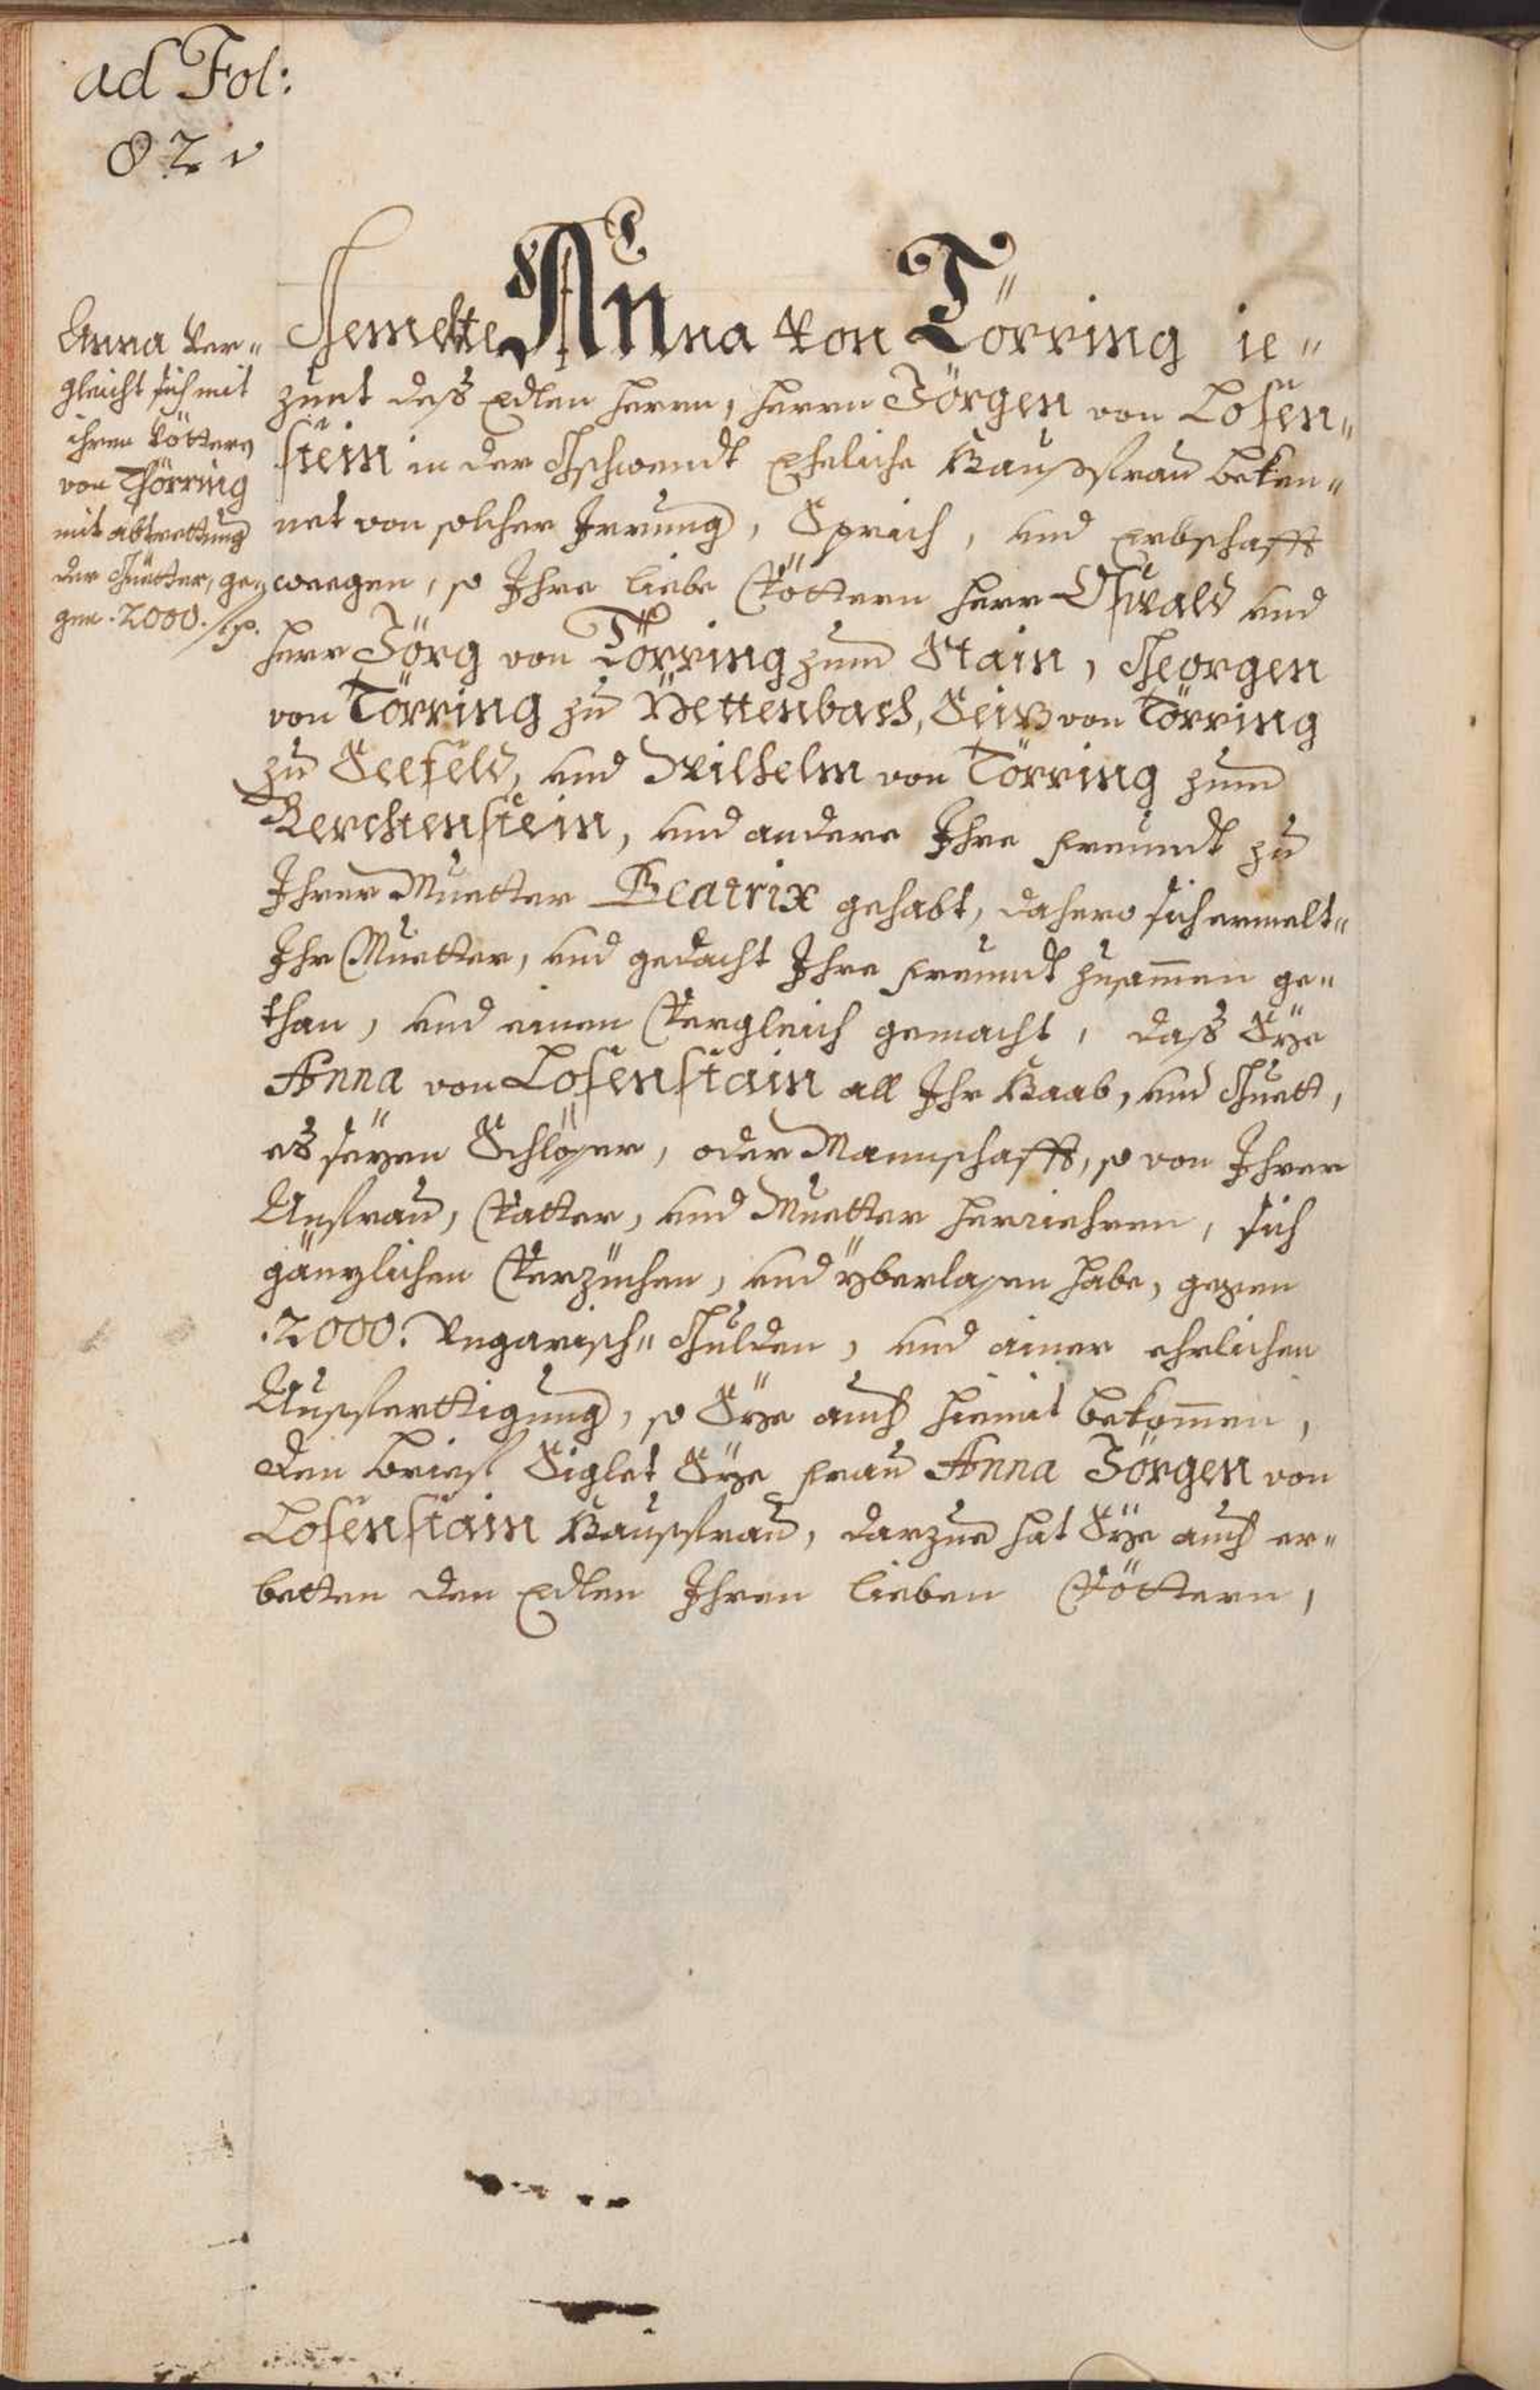 ad Fol:
82 v
Anna ver=
gleicht sich mit
ihren Vöttern
von Thörring
mit abtrettung
der Guetter, ge=
gen .2000. fl.
Gemelte Anna von Törring ie=
zunt deß Edlen Herrn, Herrn Jörgen von Losen=
stein in der Gschwendt Eheliche Haußfrau beken=
net von solcher Irrung, Sprich, und Erbschafft
weegen, so Ihre liebe Vöttern Herr Oswald und
Herr Jörg von Törring zum Stain, Georgen
von Törring zu Pettenbach, Seiz von Törring
zu Seefeld, und Wilhelm von Törring zum
Perchenstein, und andere Ihre Freundt zu
Ihrer Muetter Beatrix gehabt, dahero sich ermelt=
Ihr Muetter, und gedacht Ihre Freundt zusammen ge=
than, und einen Vergleich gemacht, daß Sÿe
Anna von Losenstain all Ihr Haab, und Guett,
es seÿen Schlösser, oder Mannschafft, so von Ihrer
Anfrau, Vatter, und Muetter herriehren, sich
gänzlichen Verzüchen, und ÿberlassen habe, gegen
.2000. Ungarisch= Gulden, und ainer ehrlichen
Ausferttigung, so Sÿe auch hiemit bekommen,
den brief Siglet Sÿe Frau Anna Jörgen von
Losenstain Hausfrau, darzue hat Sÿe auch er=
betten den Edlen Ihren lieben Vöttern,